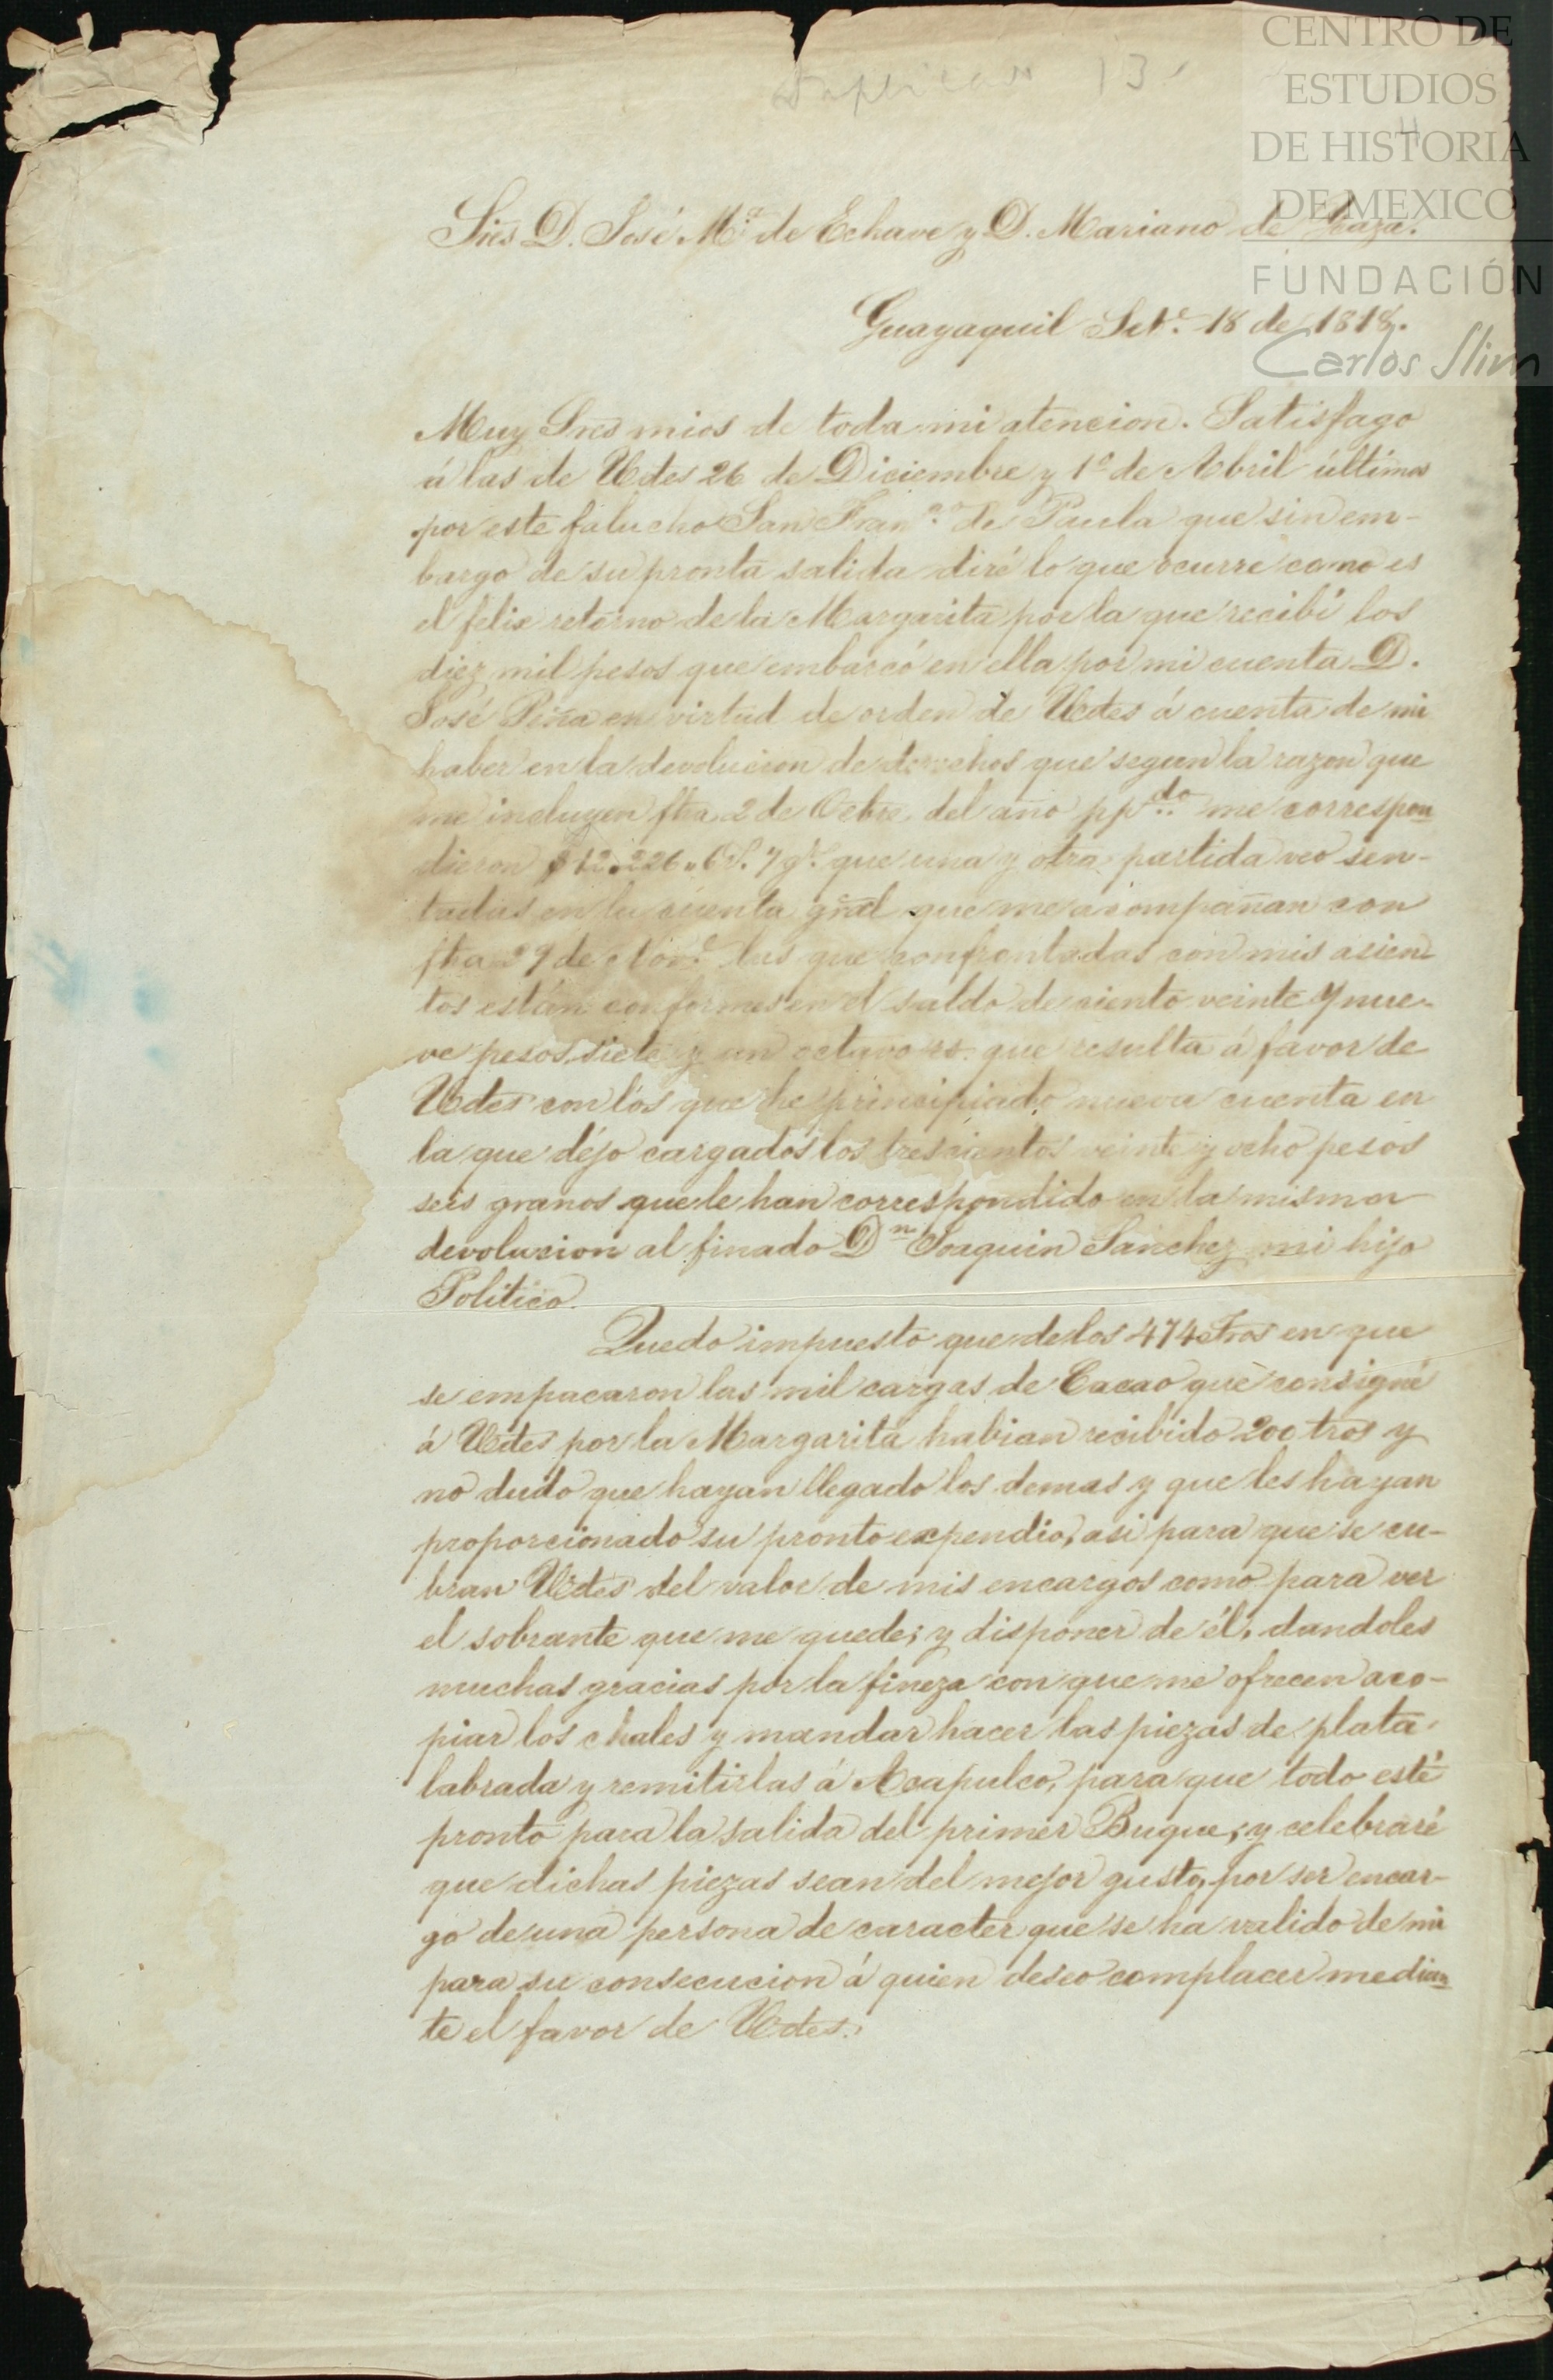 Duplicado 13
CENTRO DE
ESTUDIOS
DE HISTORIA
DE MEXICO
FUNDACIÓN
Carlos Slim
Sres D. José M.a de Echave y D. Mariano de
Guayaquil Set.e 18 de 1818.
Muy Sres mios de toda mi atencion. Satisfago
á las de Udes 26 de Diciembre y 1º de Abril último
por este falucho San Fran.co de Paula que sin em-
bargo de su pronta salida diré lo que ocurre como es
el felix retorno de la Margarita por la que recibí los
diez mil pesos que embarcó en ella por mi cuenta D.
José Peña en virtud de orden de Udes á cuenta de mi
haber en la devolucion de derechos que segun la razon que
me incluyen fha 2 de Octre del año pp.do me correspon
dieron $ 12.226 " 6 r. 7 g.s que una y otra partida veo sen-
tadas en la cuenta gral que me acompañan con
fha 29 de las que confrontadas con mis asien
tos están conformes en el saldo de ciento veinte y nue-
ve pesos, siete y un octavo rs. que resulta á favor de
Udes con los que he principiado nueva cuenta en
la que déjo cargados los trescientos veinte y ocho pesos
seis granos que le han correspondido en la misma
devolucion al finado Dn Joaquin Sanchez mi hijo
Politico.
Quedo impuesto que de los 474 tros en que
se empacaron las mil cargas de Cacao que consigné
á Udes por la Margarita habian recibido 200 tros y
no dudo que hayan llegado los demas y que les hayan
proporcionado su pronto expendio, asi para que se cu-
bran Udes del valor de mis encargos como para ver
el sobrante que me quede; y disponer de él, dandoles
muchas gracias por la fineza con que me ofrecen aco-
piar los chales y mandar hacer las piezas de plata
labrada y remitirlas á Acapulco, para que todo esté
pronto para la salida del primer Buque; y celebraré
que dichas piezas sean del mejor gusto, por ser encar-
go de una persona de caracter que se ha valido de mi
para su consecucion á quien deseo complacer median
te el favor de Udes.